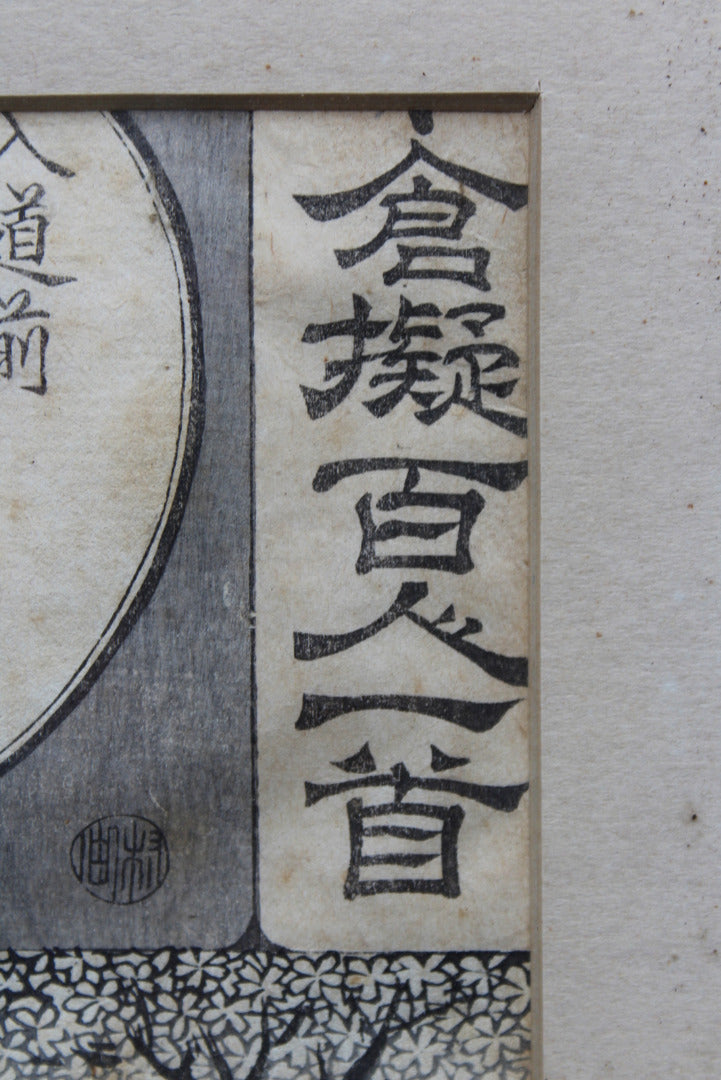 倉擬百人一首
入道前